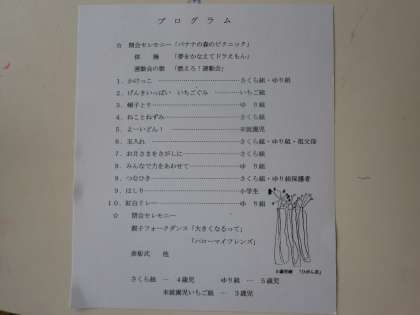 プログラム
☆ 開会セレモニー「バナナの森のピクニック」
体操 「夢をかなえてドラえもん」
運動会の歌 「燃えろ！運動会」
1．かけっこ …… さくら組・ゆり組
2．げんきいっぱい いちごぐみ …… いちご組
3．帽子とり …… ゆり組
4．ねことねずみ …… さくら組
5．よーいどん！ …… 未就園児
6．玉入れ …… さくら組・ゆり組・祖父母
7．お月さまをさがしに …… さくら組
8．みんなで力をあわせて …… ゆり組
9．つなひき …… さくら組・ゆり組保護者
9．はしり …… 小学生
10．紅白リレー …… ゆり組
☆ 閉会セレモニー
親子フォークダンス「大きくなるって」
「ハローマイフレンズ」
表彰式 他
さくら組 ― 4歳児 ゆり組 ― 5歳児
未就園児いちご組 ― 3歳児